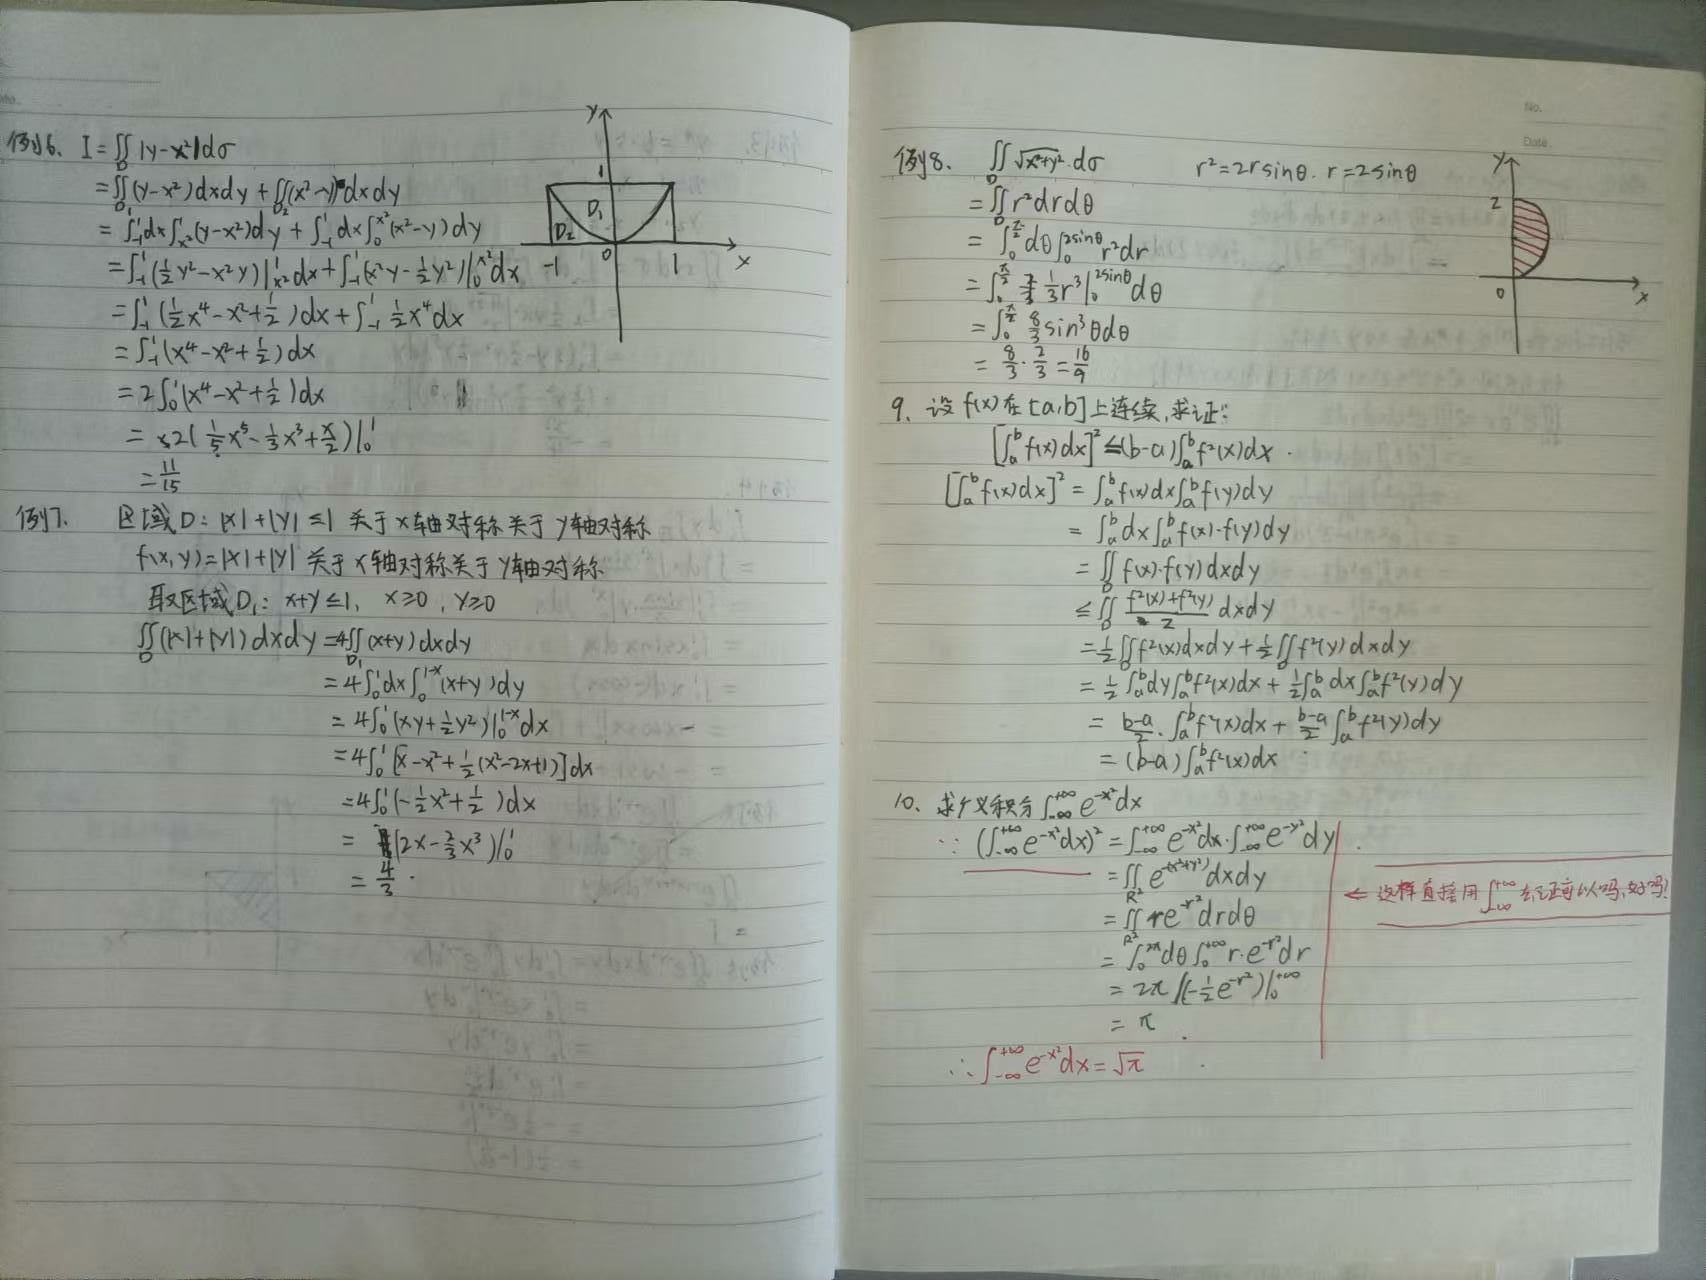 例6、 I=∬_D |y-x²|dσ
=∬_{D₁}(y-x²)dxdy+∬_{D₂}(x²-y)dxdy
=∫_{-1}^{1}dx∫_{x²}^{1}(y-x²)dy+∫_{-1}^{1}dx∫_{0}^{x²}(x²-y)dy
=∫_{-1}^{1}(½y²-x²y)|_{x²}^{1}dx+∫_{-1}^{1}(x²y-½y²)|_{0}^{x²}dx
=∫_{-1}^{1}(½x⁴-x²+½)dx+∫_{-1}^{1}½x⁴dx
=∫_{-1}^{1}(x⁴-x²+½)dx
=2∫_{0}^{1}(x⁴-x²+½)dx
=2(⅕x⁵-⅓x³+x/2)|_{0}^{1}
=11/15
y
1
D₁
D₂
-1 0 1 x
例7. 区域D:|x|+|y|≤1 关于x轴对称关于y轴对称
f(x,y)=|x|+|y| 关于x轴对称关于y轴对称
取区域D₁: x+y≤1, x≥0, y≥0
∬_D(|x|+|y|)dxdy=4∬_{D₁}(x+y)dxdy
=4∫_{0}^{1}dx∫_{0}^{1-x}(x+y)dy
=4∫_{0}^{1}(xy+½y²)|_{0}^{1-x}dx
=4∫_{0}^{1}[x-x²+½(x²-2x+1)]dx
=4∫_{0}^{1}(-½x²+½)dx
=(2x-⅔x³)|_{0}^{1}
=4/3.
No.
Date.
例8. ∬_D √(x²+y²)·dσ r²=2rsinθ. r=2sinθ
=∬_D r²drdθ
=∫_{0}^{π/2}dθ∫_{0}^{2sinθ}r²dr
=∫_{0}^{π/2}⅓r³|_{0}^{2sinθ}dθ
=∫_{0}^{π/2}8/3 sin³θdθ
=8/3·2/3=16/9
y
2
0 x
9. 设f(x)在[a,b]上连续,求证:
[∫_{a}^{b}f(x)dx]²≤(b-a)∫_{a}^{b}f²(x)dx.
[∫_{a}^{b}f(x)dx]²=∫_{a}^{b}f(x)dx∫_{a}^{b}f(y)dy
=∫_{a}^{b}dx∫_{a}^{b}f(x)·f(y)dy
=∬_D f(x)·f(y)dxdy
≤∬_D (f²(x)+f²(y))/2 dxdy
=½∬_D f²(x)dxdy+½∬_D f²(y)dxdy
=½∫_{a}^{b}dy∫_{a}^{b}f²(x)dx+½∫_{a}^{b}dx∫_{a}^{b}f²(y)dy
=(b-a)/2·∫_{a}^{b}f²(x)dx+(b-a)/2∫_{a}^{b}f²(y)dy
=(b-a)∫_{a}^{b}f²(x)dx
10、求广义积分∫_{-∞}^{+∞}e^{-x²}dx
∵(∫_{-∞}^{+∞}e^{-x²}dx)²=∫_{-∞}^{+∞}e^{-x²}dx·∫_{-∞}^{+∞}e^{-y²}dy
=∬_{R²}e^{-(x²+y²)}dxdy
=∬_{R²}re^{-r²}drdθ
=∫_{0}^{2π}dθ∫_{0}^{+∞}r·e^{-r²}dr
=2π(-½e^{-r²})|_{0}^{+∞}
=π
∴∫_{-∞}^{+∞}e^{-x²}dx=√π
← 这样直接用∫_{-∞}^{+∞}去证可以吗,好吗?